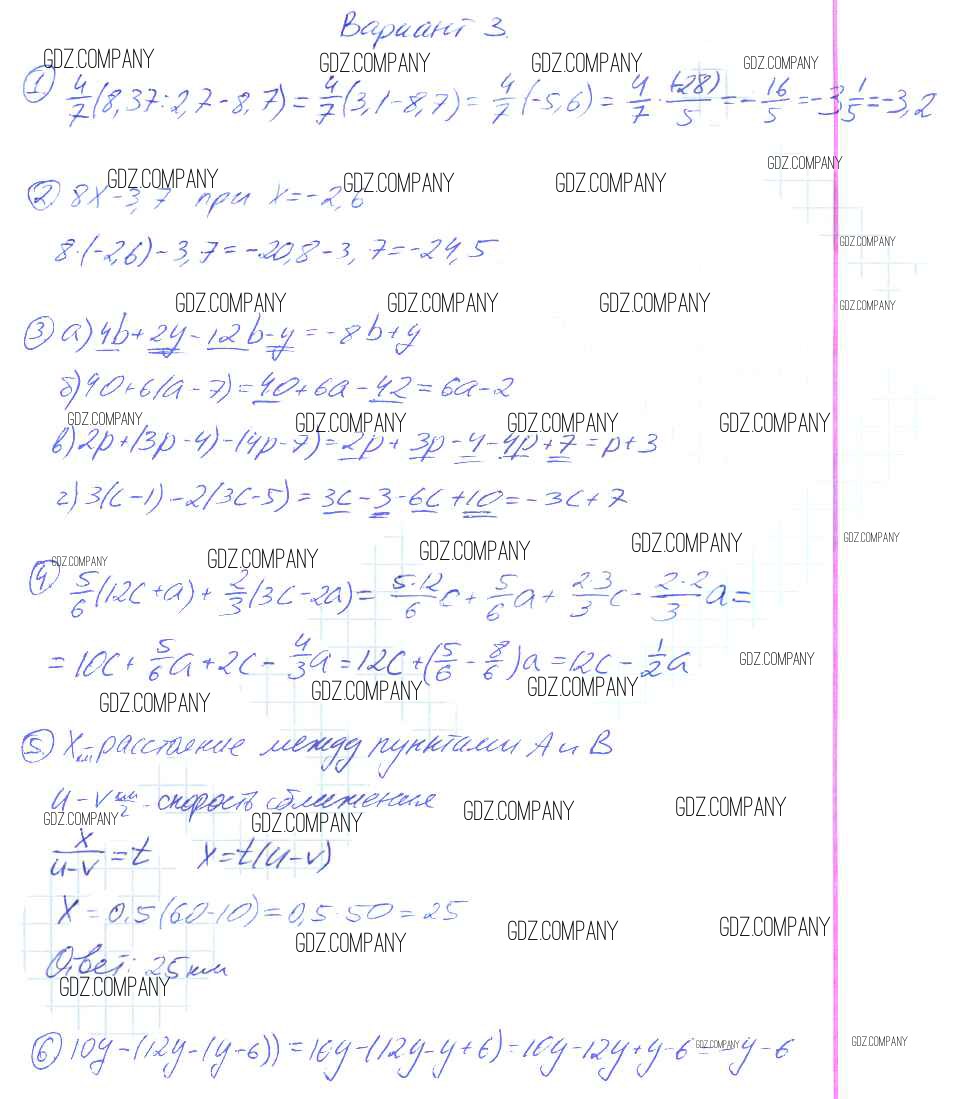 Вариант 3.
GDZ.COMPANY GDZ.COMPANY GDZ.COMPANY GDZ.COMPANY
① 4/7(8,37:2,7-8,7)=4/7(3,1-8,7)=4/7(-5,6)=4/7·(-28)/5=-16/5=-3 1/5=-3,2
GDZ.COMPANY GDZ.COMPANY GDZ.COMPANY GDZ.COMPANY
② 8x-3,7 при x=-2,6
8·(-2,6)-3,7=-20,8-3,7=-24,5
GDZ.COMPANY
GDZ.COMPANY GDZ.COMPANY GDZ.COMPANY GDZ.COMPANY
③ а) 4b+2y-12b-y=-8b+y
б) 40+6(a-7)=40+6a-42=6a-2
GDZ.COMPANY GDZ.COMPANY GDZ.COMPANY GDZ.COMPANY
в) 2p+(3p-4)-(4p-7)=2p+3p-4-4p+7=p+3
г) 3(c-1)-2(3c-5)=3c-3-6c+10=-3c+7
GDZ.COMPANY GDZ.COMPANY GDZ.COMPANY GDZ.COMPANY GDZ.COMPANY
④ 5/6(12c+a)+2/3(3c-2a)=5·12/6c+5/6a+2·3/3c-2·2/3a=
=10c+5/6a+2c-4/3a=12c+(5/6-8/6)a=12c-1/2a
GDZ.COMPANY
GDZ.COMPANY GDZ.COMPANY GDZ.COMPANY
⑤ x км - расстояние между пунктами A и B
u-v км/ч - скорость сближения
GDZ.COMPANY GDZ.COMPANY GDZ.COMPANY GDZ.COMPANY
x/(u-v)=t x=t(u-v)
x=0,5(60-10)=0,5·50=25
GDZ.COMPANY GDZ.COMPANY GDZ.COMPANY
Ответ: 25 км
GDZ.COMPANY
⑥ 10y-(12y-(y-6))=10y-(12y-y+6)=10y-12y+y-6=-y-6
GDZ.COMPANY GDZ.COMPANY